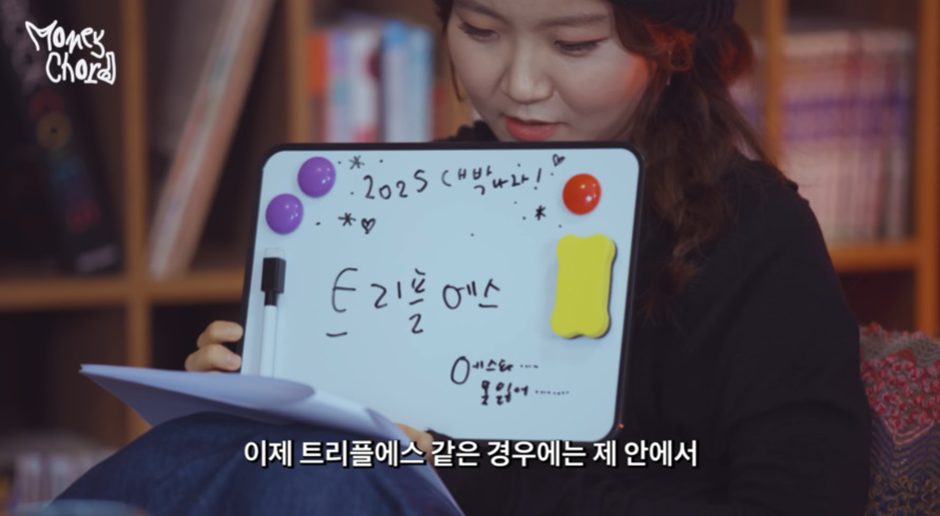 Money
Chord
2025 대박나라!
트리플에스
에스파....
못잃어.......
이제 트리플에스 같은 경우에는 제 안에서